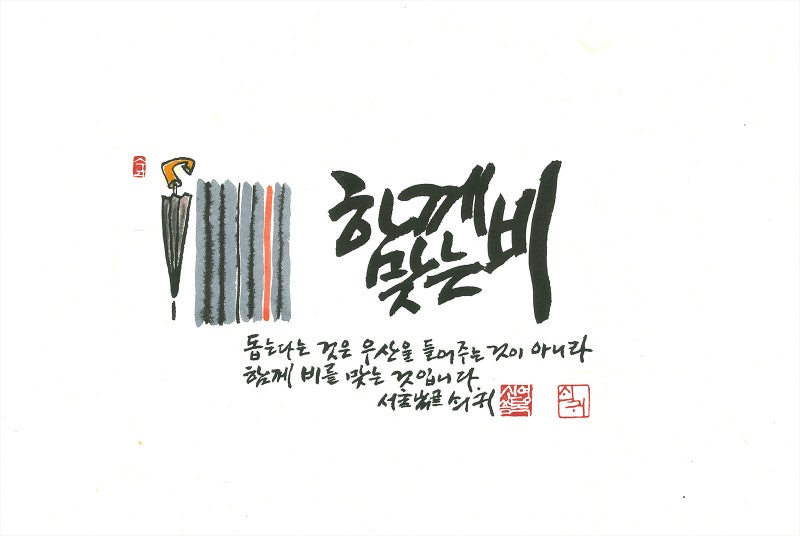 함께
맞는 비
돕는다는 것은 우산을 들어주는 것이 아니라
함께 비를 맞는 것입니다.
쇠귀
쇠귀